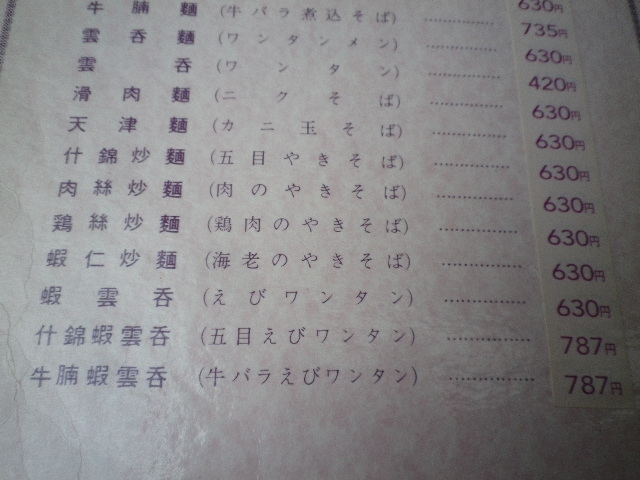 630円
牛腩麵 (牛バラ煮込そば) ………… 735円
雲呑麵 (ワンタンメン) ………… 630円
雲呑 (ワンタン) ………… 420円
滑肉麵 (ニクそば) ………… 630円
天津麵 (カニ玉そば) ………… 630円
什錦炒麵 (五目やきそば) ………… 630円
肉絲炒麵 (肉のやきそば) ………… 630円
鶏絲炒麵 (鶏肉のやきそば) ………… 630円
蝦仁炒麵 (海老のやきそば) ………… 630円
蝦雲呑 (えびワンタン) ………… 630円
什錦蝦雲呑 (五目えびワンタン) ………… 787円
牛腩蝦雲呑 (牛バラえびワンタン) ………… 787円